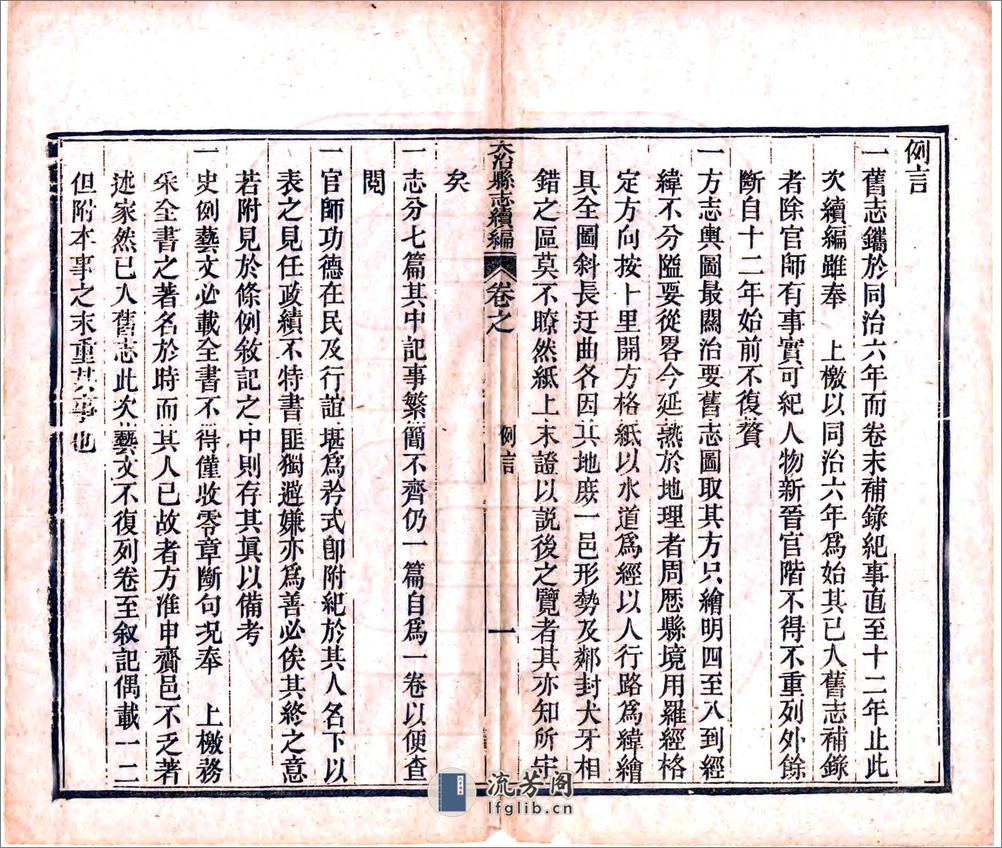 例言
一舊志鐫於同治六年而卷末補錄紀事直至十二年止此
次續編雖奉　上檄以同治六年爲始其已入舊志補錄
者除官師有事實可紀人物新晉官階不得不重列外餘
斷自十二年始前不復贅
一方志輿圖最關治要舊志圖取其方只繪明四至八到經
緯不分隘要從畧今延熟於地理者周歷縣境用羅經格
定方向按上里開方格紙以水道爲經以人行路爲緯繪
具全圖斜長迂曲各因其地庶一邑形勢及鄰封犬牙相
錯之區莫不瞭然紙上末證以説後之覽者其亦知所宗
大冶縣志續編　卷之　例言　一
矣
一志分七篇其中記事繁簡不齊仍一篇自爲一卷以便查
閱
一官師功德在民及行誼堪爲矜式卽附紀於其人名下以
表之見任政績不特書匪獨避嫌亦爲善必俟其終之意
若附見於條例敘記之中則存其眞以備考
一史例藝文必載全書不得僅收零章斷句况奉　上檄務
采全書之著名於時而其人已故者方准申齎邑不乏著
述家然已入舊志此次藝文不復列卷至敘記偶載一二
但附本事之末重其事也
流芳閣
lfglib.cn